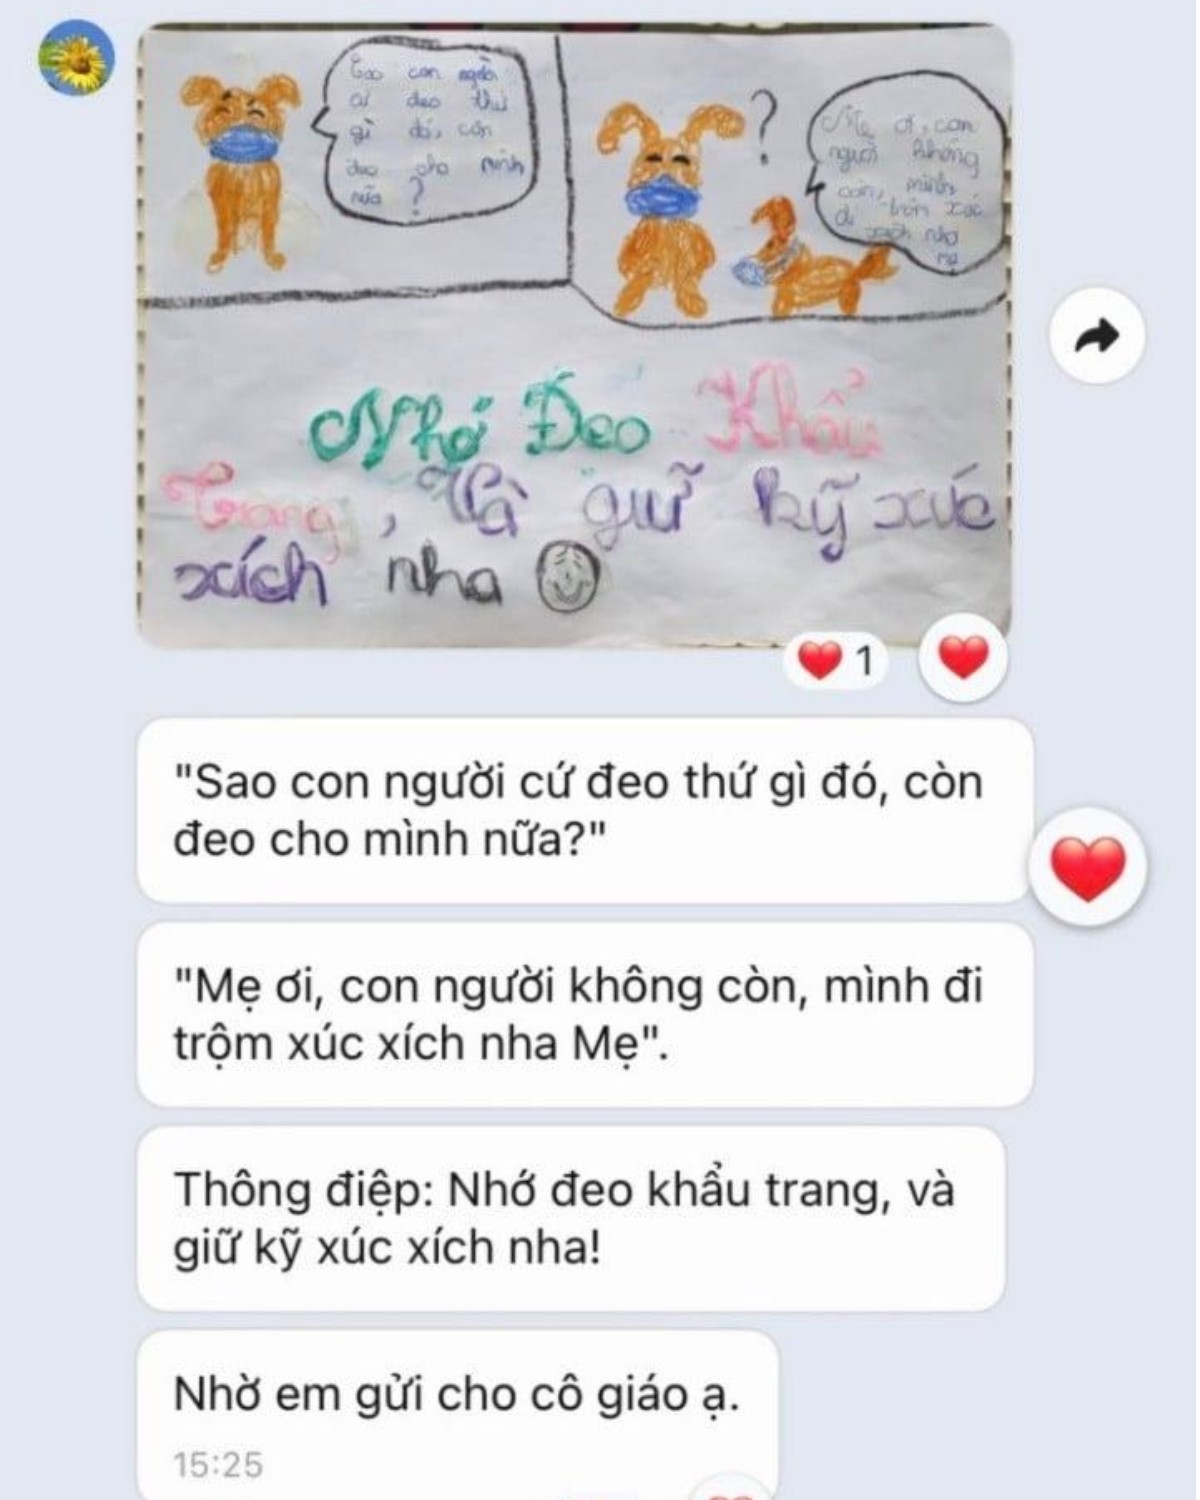 Sao con người
cứ đeo thứ
gì đó, còn
đeo cho mình
nữa?
?
Mẹ ơi, con
người không
còn, mình
đi trộm xúc
xích nha
mẹ
Nhớ Đeo Khẩu
Trang, Và giữ kỹ xúc
xích nha
1
"Sao con người cứ đeo thứ gì đó, còn
đeo cho mình nữa?"
"Mẹ ơi, con người không còn, mình đi
trộm xúc xích nha Mẹ".
Thông điệp: Nhớ đeo khẩu trang, và
giữ kỹ xúc xích nha!
Nhờ em gửi cho cô giáo ạ.
15:25